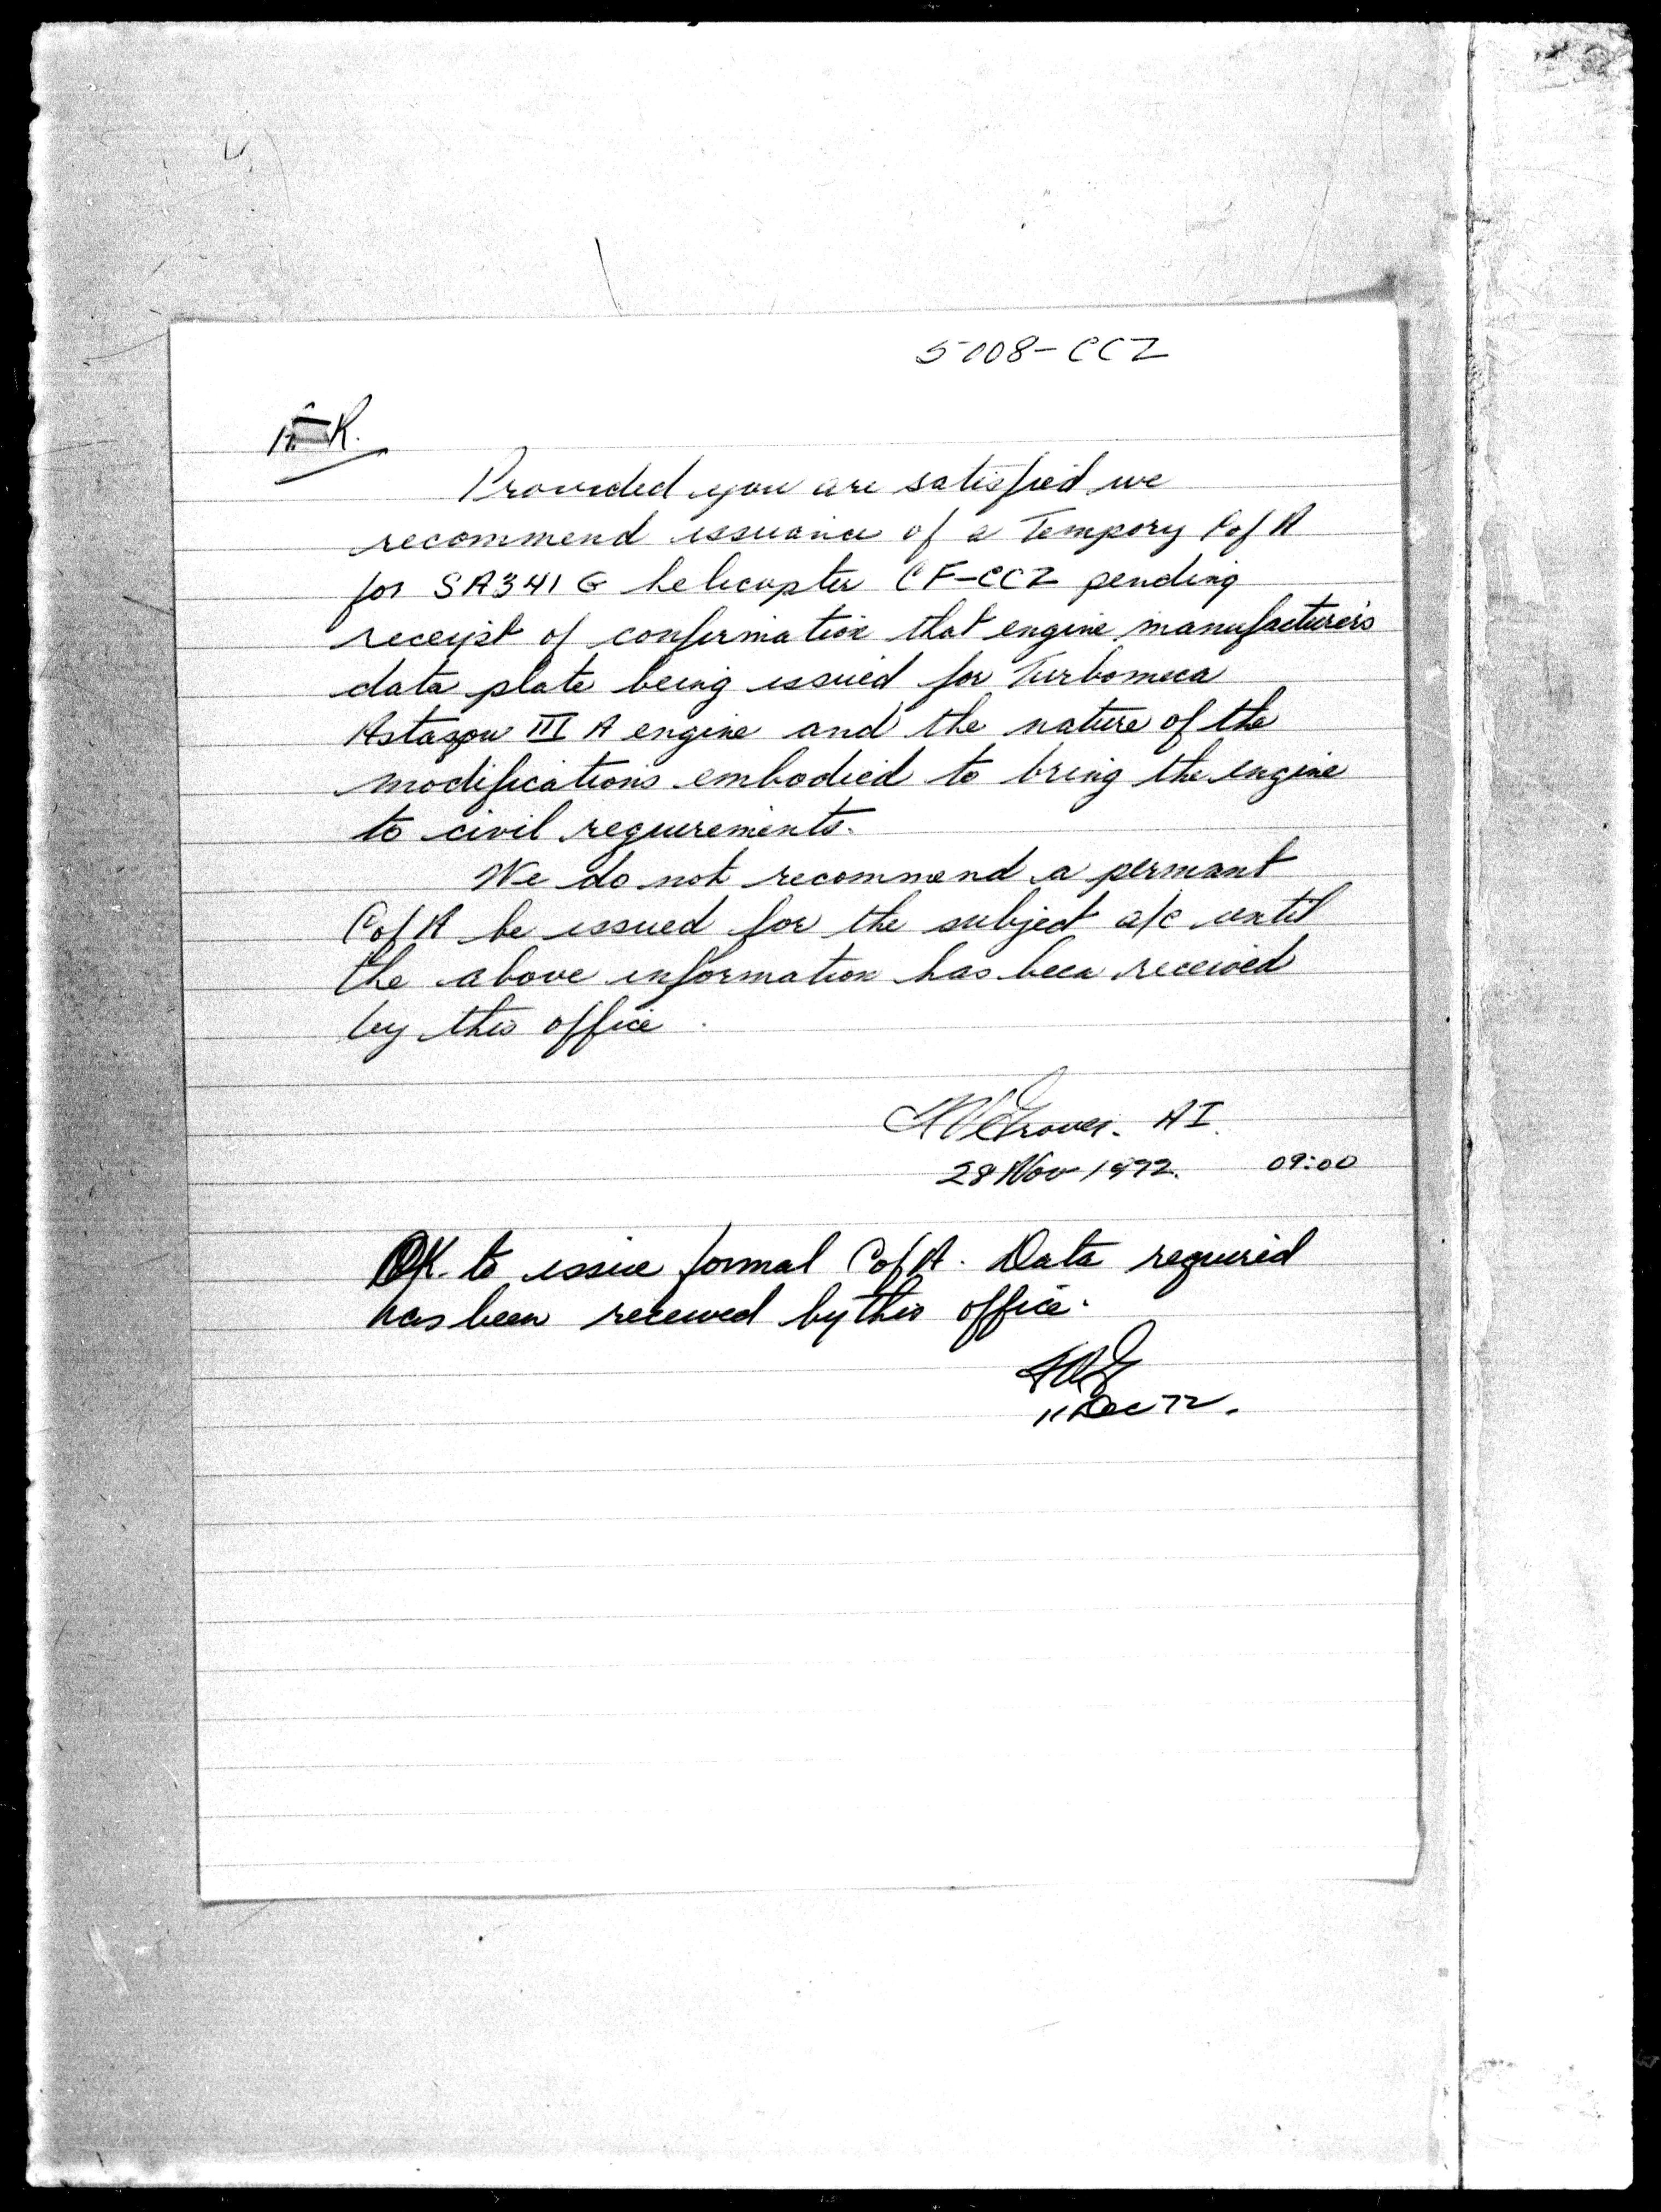 5008-CCZ
Provided you are satisfied we
recommend issuance of a Tempory C of A
for SA341 G helicopter CF-CCZ pending
receipt of confirmation that engine manufacturer's
data plate being issued for Turbomeca
Astazou III A engine and the nature of the
modifications embodied to bring the engine
to civil requirements.
We do not recommend a permant
C of A be issued for the subject a/c until
the above information has been received
by this office.
AI.
28 Nov 1972. 09:00
OK. to issue formal C of A. Data required
has been received by this office.
11 Dec 72.